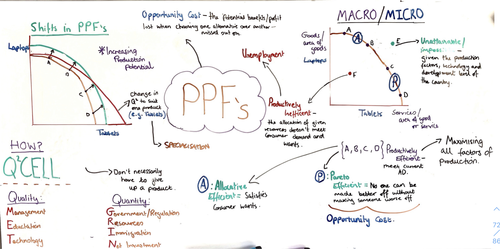 Shifts in PPF's
Laptops
*Increasing
Production
Potential
A
B
C
D
Tablets
Opportunity Cost - the potential benefits/profit
lost when choosing one alternative over another
missed out on.
Unemployment
PPF's
Change in
Q to suit
one product
(e.g. Tablets)
SPECIALISATION
Productively
Inefficient -
the allocation of given
resources doesn't meet
consumer demand and
wants.
MACRO/MICRO
Goods/
area of
goods
Laptops
A
A
B
C
P
D
E
F
Unattainable/
given the production
factors, technology and
development level of
the country.
Tablets
Services/
area of good
or service
HOW?
Q²CELL
Don't necessarily
have to give
up a product.
Quality:
Management
Education
Technology
Quantity:
Government/Regulation
Resources
Immigration
Net Investment
A: Allocative
Efficient = Satisfies
Consumer wants.
{A, B, C, D} Productively
Efficient -
meet current
AD.
Maximising
all factors of
production.
P: Pareto
Efficient = No one can be
made better off without
making someone worse off
Opportunity Cost.
72